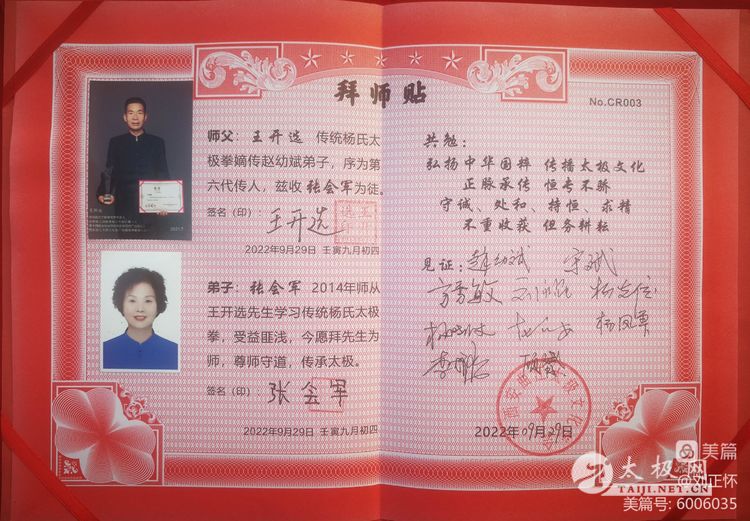 拜师贴
No.CR003
师父：王开选 传统杨氏太
极拳嫡传赵幼斌弟子，序为第
六代传人，兹收 张会军为徒。
签名（印）：王开选
2022年9月29日 壬寅九月初四
弟子：张会军 2014年师从
王开选先生学习传统杨氏太极
拳，受益匪浅，今愿拜先生为
师，尊师守道，传承太极。
签名（印）：张会军
2022年9月29日 壬寅九月初四
共勉：
弘扬中华国粹 传播太极文化
正脉承传 恒专不骄
守诚、处和 持恒、求精
不重收获 但务耕耘
见证：赵幼斌 宋斌
2022年09月29日
美篇
@刘正怀
美篇号: 6006035
太极网
TAIJI.NET.CN